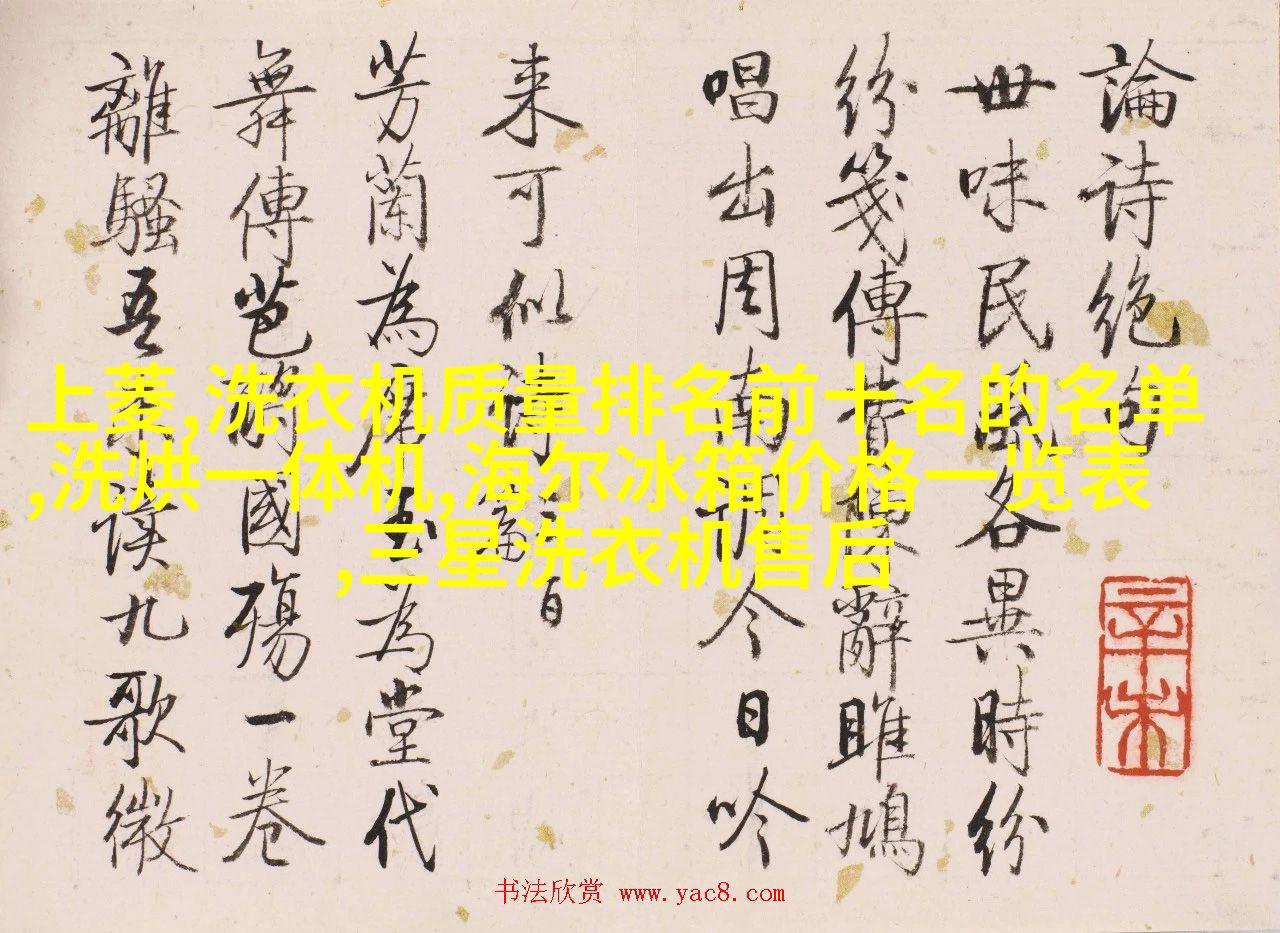 論诗绝句
世味民風各異時紛
紛箋傳費辭雎鳩
唱出周南調今日吟
来可似诗
芳蘭為席玉為堂代
舞傳芭國殤一卷
離騷吾未读九歌微
辛未
上菱,洗衣机质量排名前十名的名单
,洗烘一体机,海尔冰箱价格一览表
,三星洗衣机售后
书法欣赏 www.yac8.com